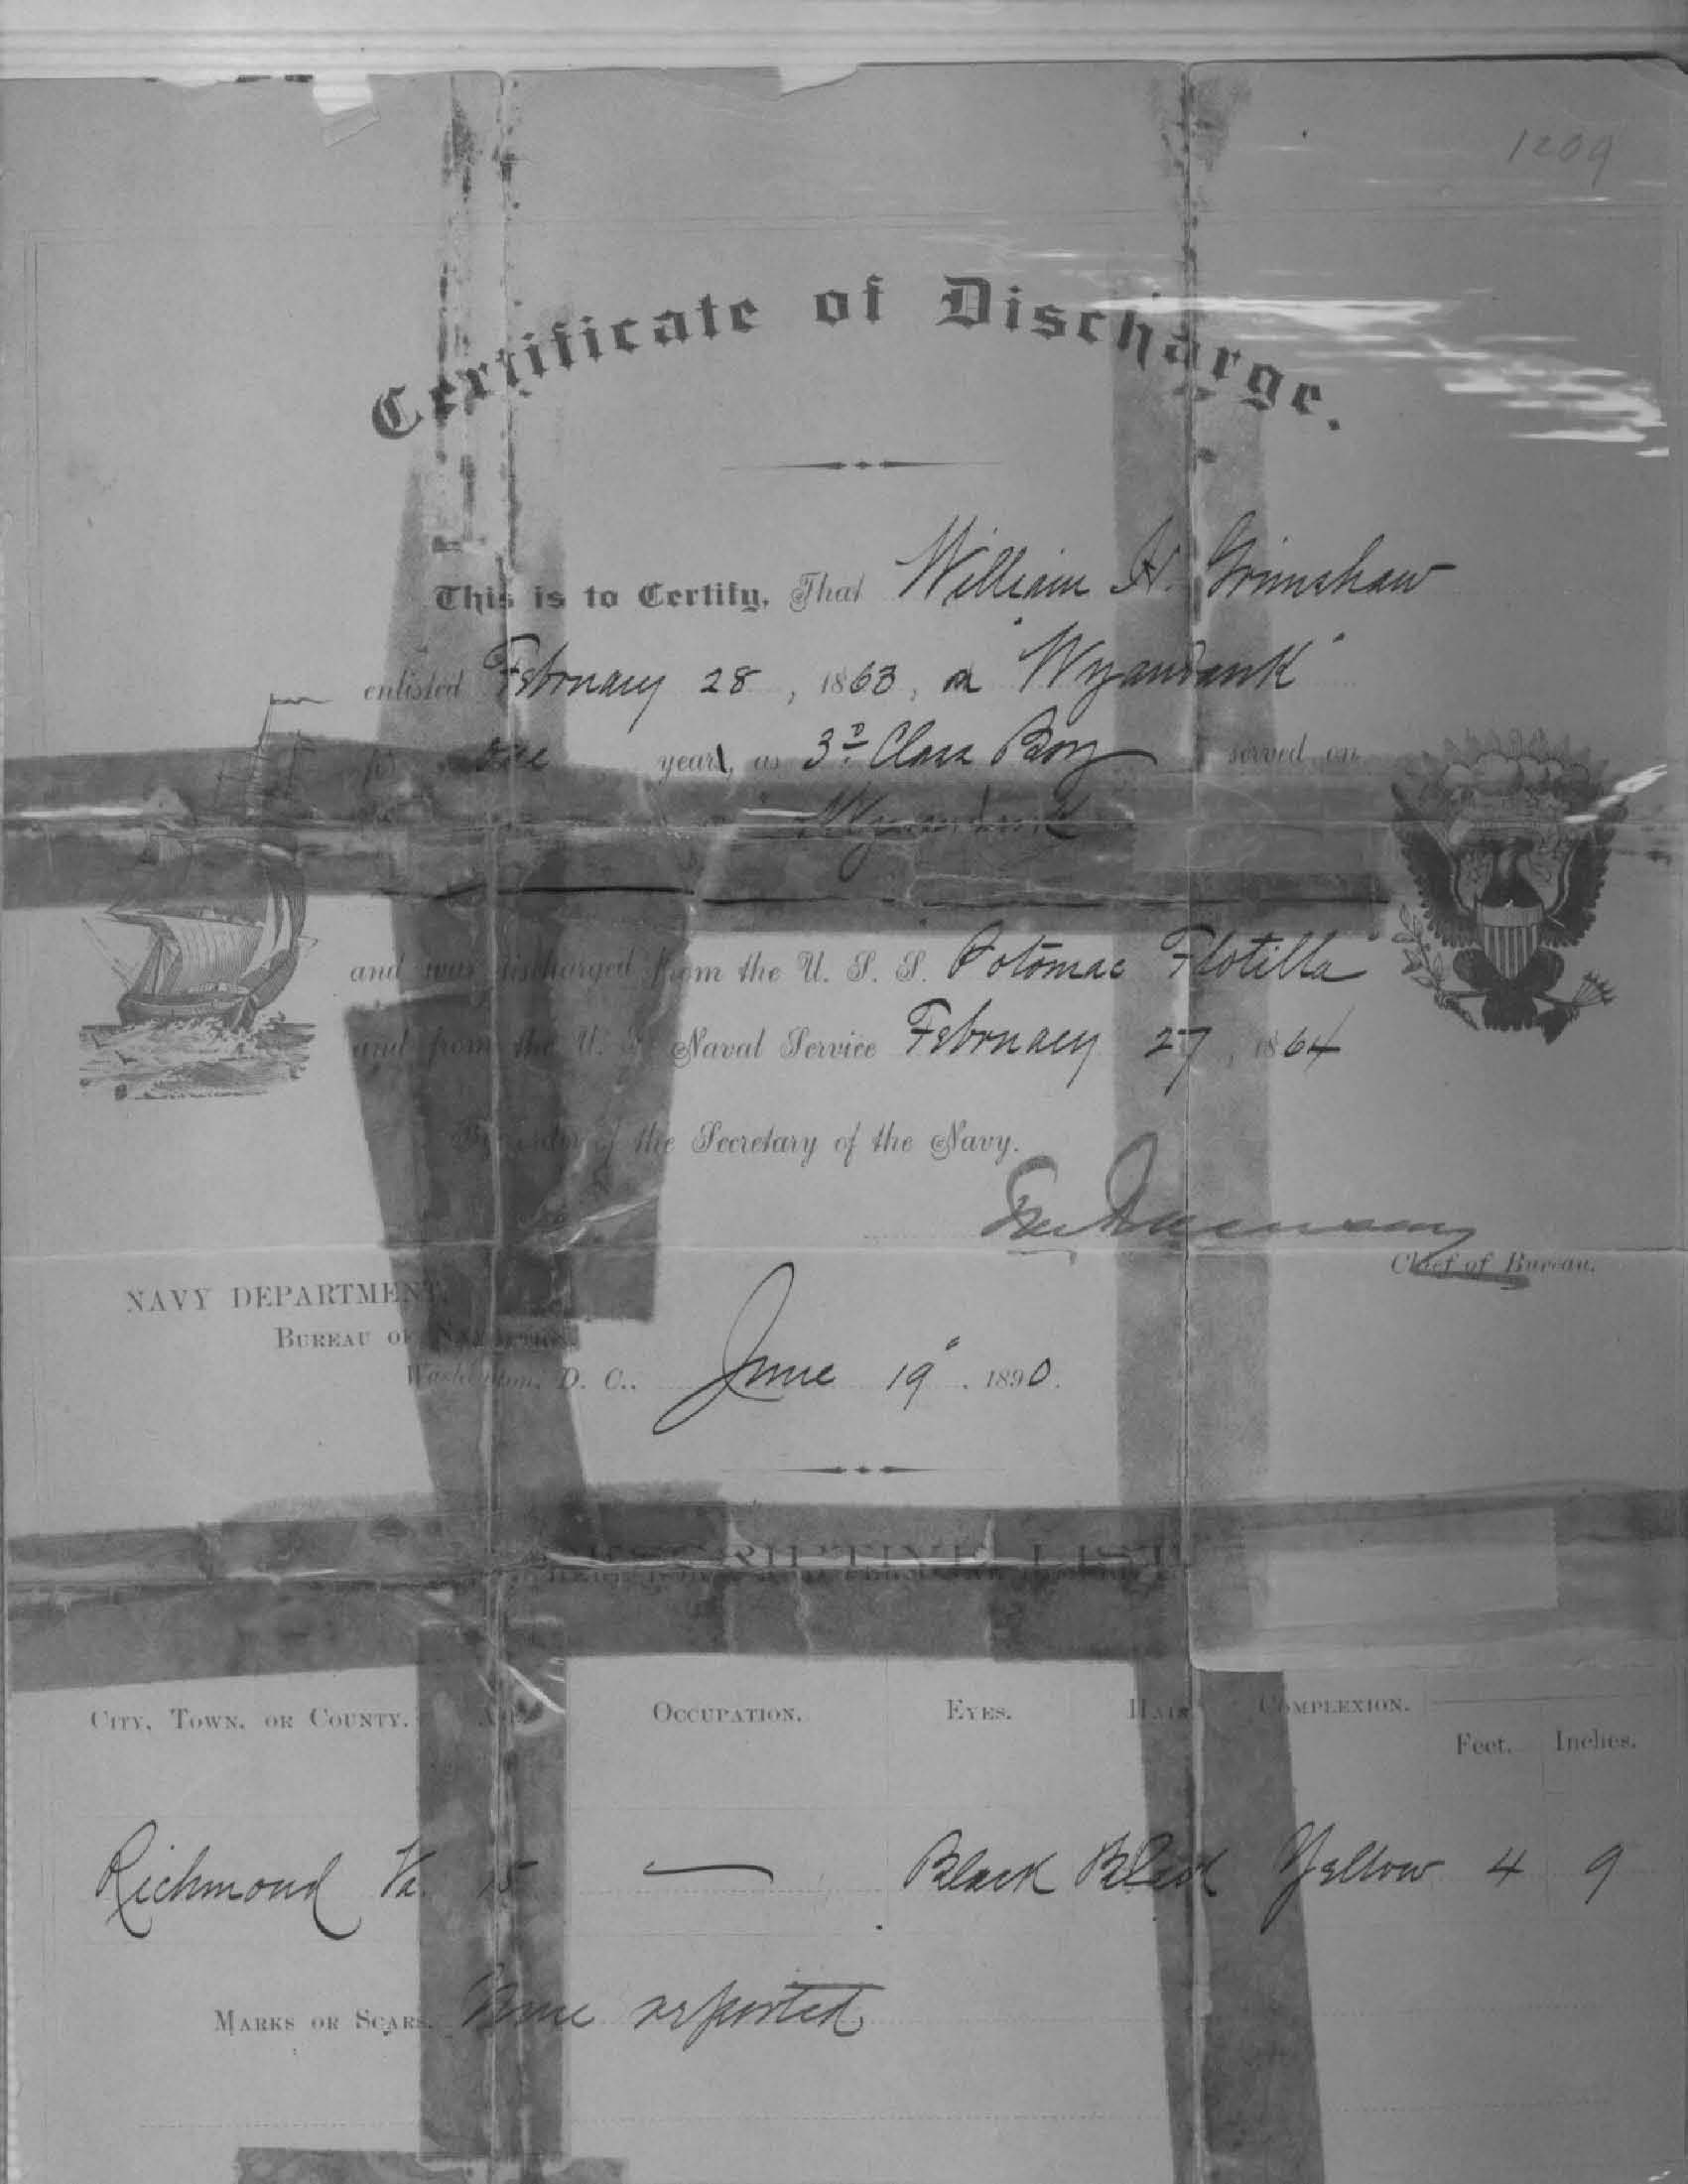 1209
Certificate of Discharge.
This is to Certify, That William H. Grimshaw
enlisted February 28, 1863, on "Wyandank"
for one year, as 3d Class Boy served on
"Wyandank"
and was discharged from the U. S. S. "Potomac Flotilla"
and from the U. S. Naval Service February 27, 1864
By order of the Secretary of the Navy.
Chief of Bureau.
NAVY DEPARTMENT,
BUREAU OF NAVIGATION,
Washington, D. C., June 19", 1890.
DESCRIPTIVE LIST
CITY, TOWN, OR COUNTY. AGE. OCCUPATION. EYES. HAIR. COMPLEXION.
Feet. Inches.
Richmond Va. 15 — Black Black Yellow 4 9
MARKS OR SCARS. None reported